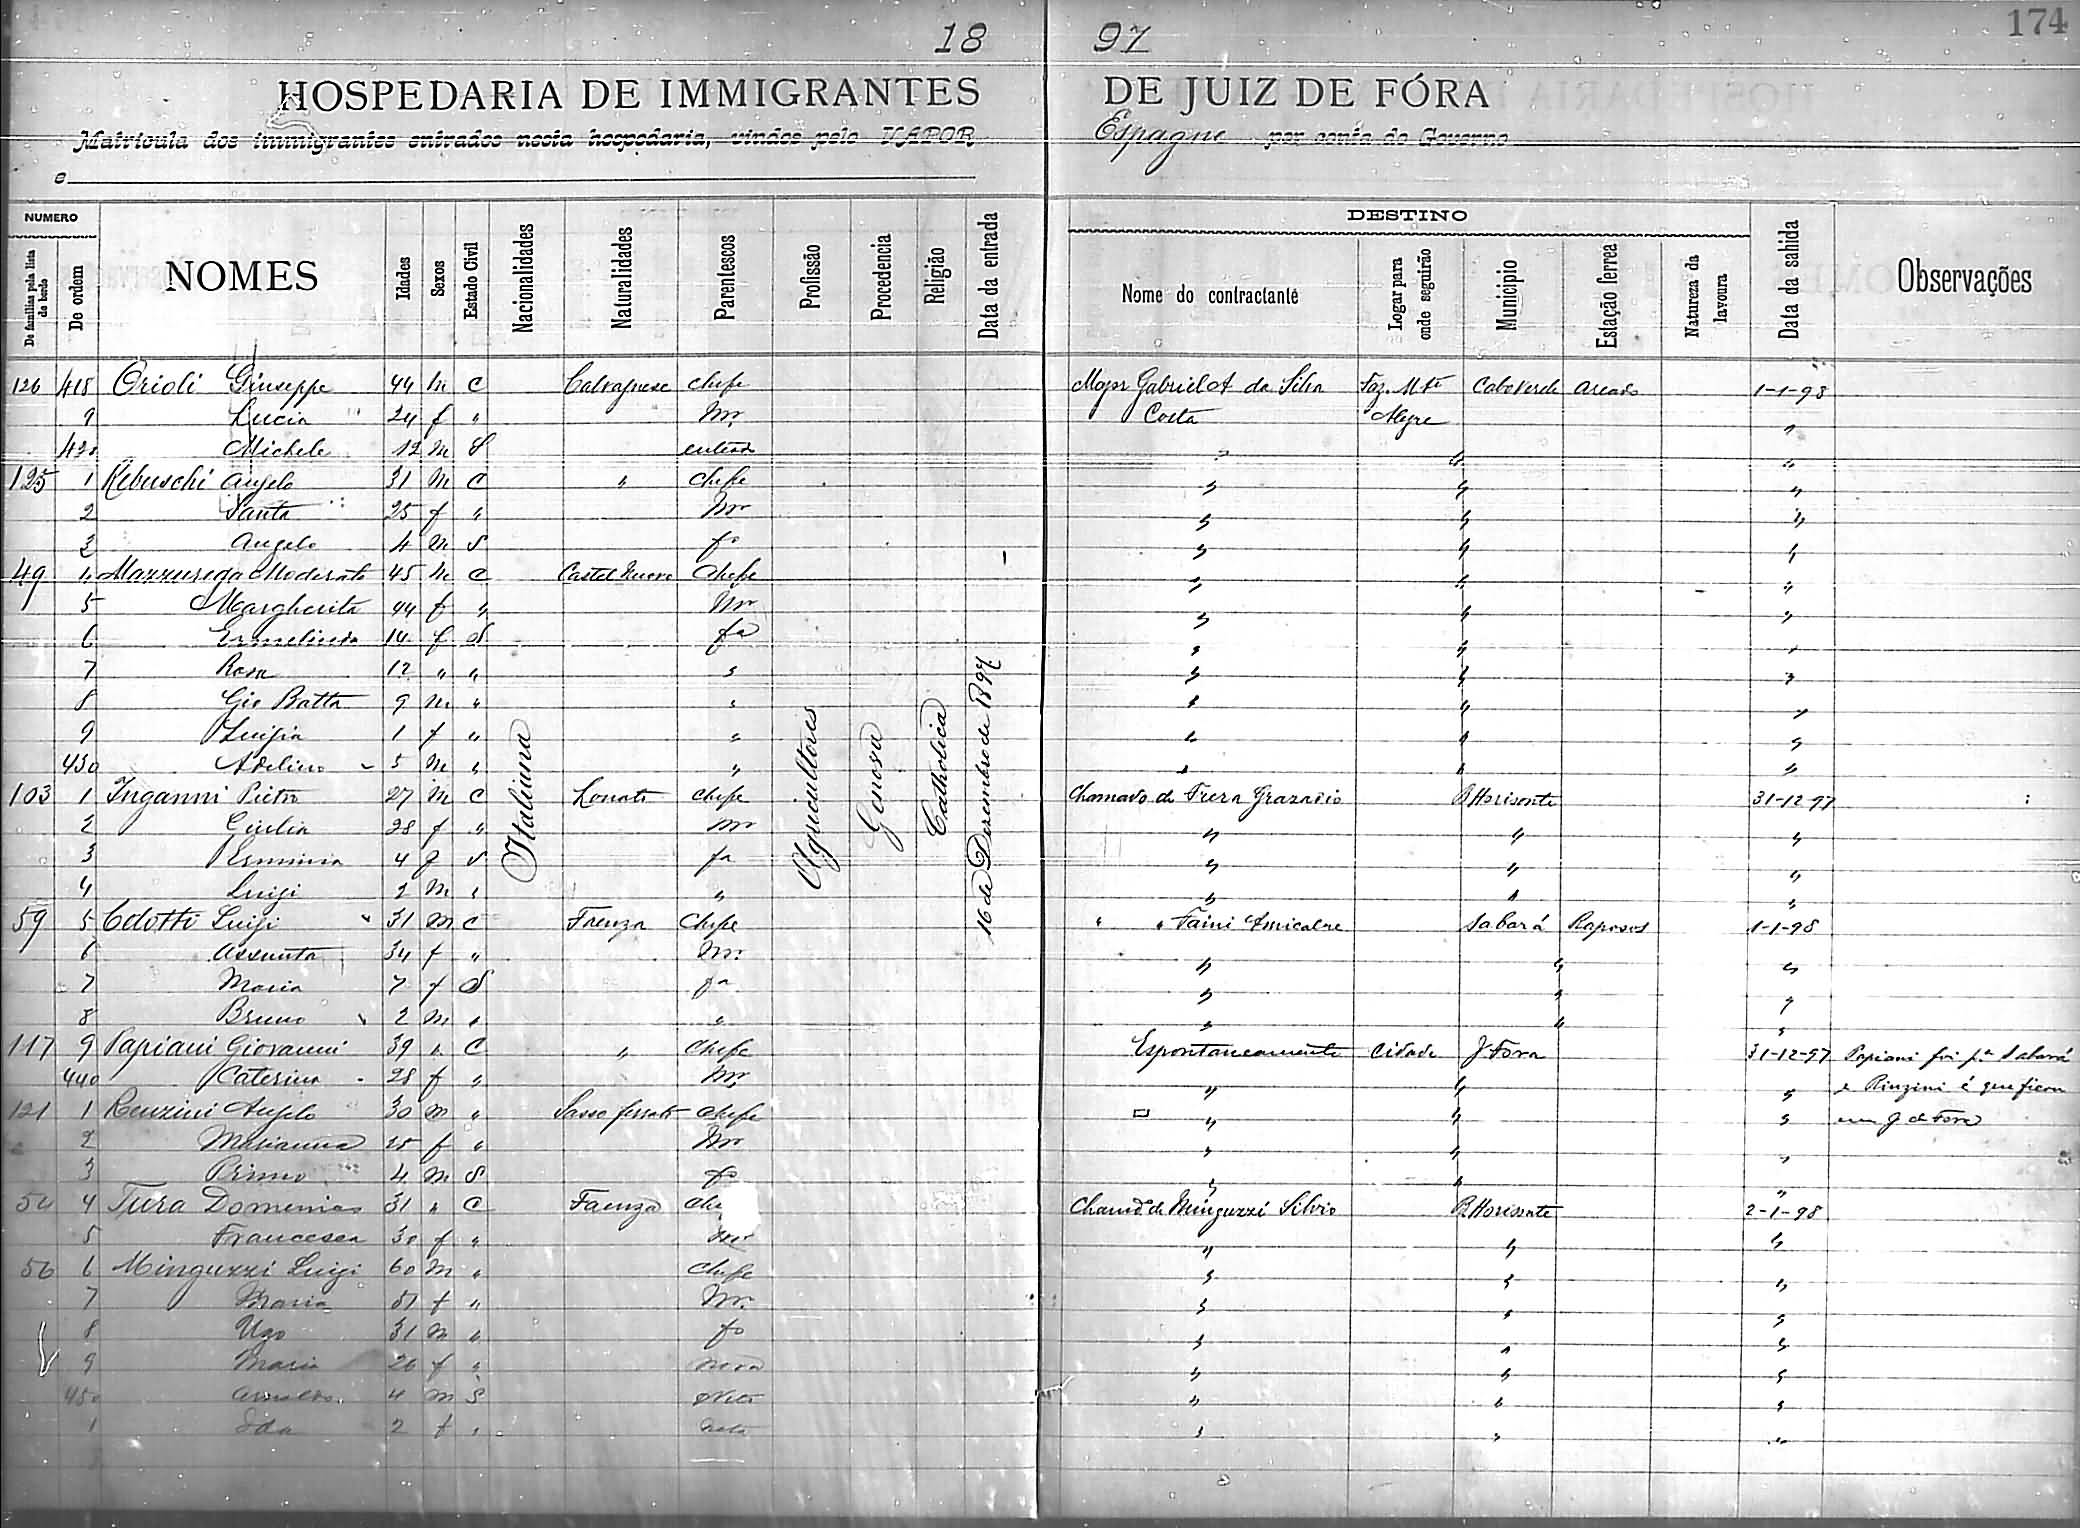 174
18 97
HOSPEDARIA DE IMMIGRANTES DE JUIZ DE FÓRA
Matricula dos immigrantes entrados nesta hospedaria, vindos pelo VAPOR Espagne por conta do Governo
e
NUMERO
DESTINO
De familias pela lista de bordo
De ordem
NOMES
Idades
Sexos
Estado Civil
Nacionalidades
Naturalidades
Parentescos
Profissão
Procedencia
Religião
Data da entrada
Nome do contractante
Logar para onde seguirão
Municipio
Estação ferrea
Natureza da lavoura
Data da sahida
Observações
Italiana
Agricultores
Genova
Catholica
16 de Dezembro de 1897
126 418 Orioli Giuseppe 44 M C Calvagnese chefe Major Gabriel A da Silva Faz. Mte Caboverde Areado 1-1-98
9 Lucia 24 f " Mr Costa Alegre "
420 Michele 12 M S " " "
125 1 Rebuschi Angelo 31 M C " chefe " " "
2 Santa 25 f " Mr " " "
3 Angelo 4 M S fo " " "
49 4 Mazzurega Moderato 45 M C Castel Nuovo Chefe " " "
5 Margherita 44 f " Mr " " "
6 Ermelinda 14 f S fa " " "
7 Rosa 12 " " " " " "
8 Gio Batta 9 M " " " " "
9 Luigia 1 f " " " " "
430 Adelino 5 M " " " " "
103 1 Inganni Pietro 27 M C Lonato chefe Chamado de B Horisonte 31-12-97
2 Giulia 28 f " Mr " " "
3 Erminia 4 f S fa " " "
4 Luigi 2 M " " " " "
59 5 Cdotti Luigi 31 M C Faenza Chefe " " Faini Sabará Raposos 1-1-98
6 Assunta 34 f " Mr " " "
7 Maria 7 f S fa " " "
8 Bruno 2 M " " " " "
117 9 Papiani Giovanni 39 " C " Chefe Espontaneamente Cidade J Fora 31-12-97 Papiani foi pa Sabará
440 Caterina 28 f " Mr " " " e Rinzini é que ficou
121 1 Renzini Angelo 30 M " Sasso ferrato Chefe " " " em J de Fora
2 Marianna 25 f " Mr " " "
3 Primo 4 M S fo " " "
54 4 Tura Domenico 31 " C Faenza Che Chamdo de Minguzzi Silvio B Horisonte 2-1-98
5 Francesca 30 f " Mr " " "
56 6 Minguzzi Luigi 60 M " Chefe " " "
7 Maria 51 f " Mr " " "
8 Ugo 31 M " fo " " "
9 Maria 26 f " nora " " "
450 Arnaldo 4 M S Neto " " "
1 Ida 2 f " neta " " "